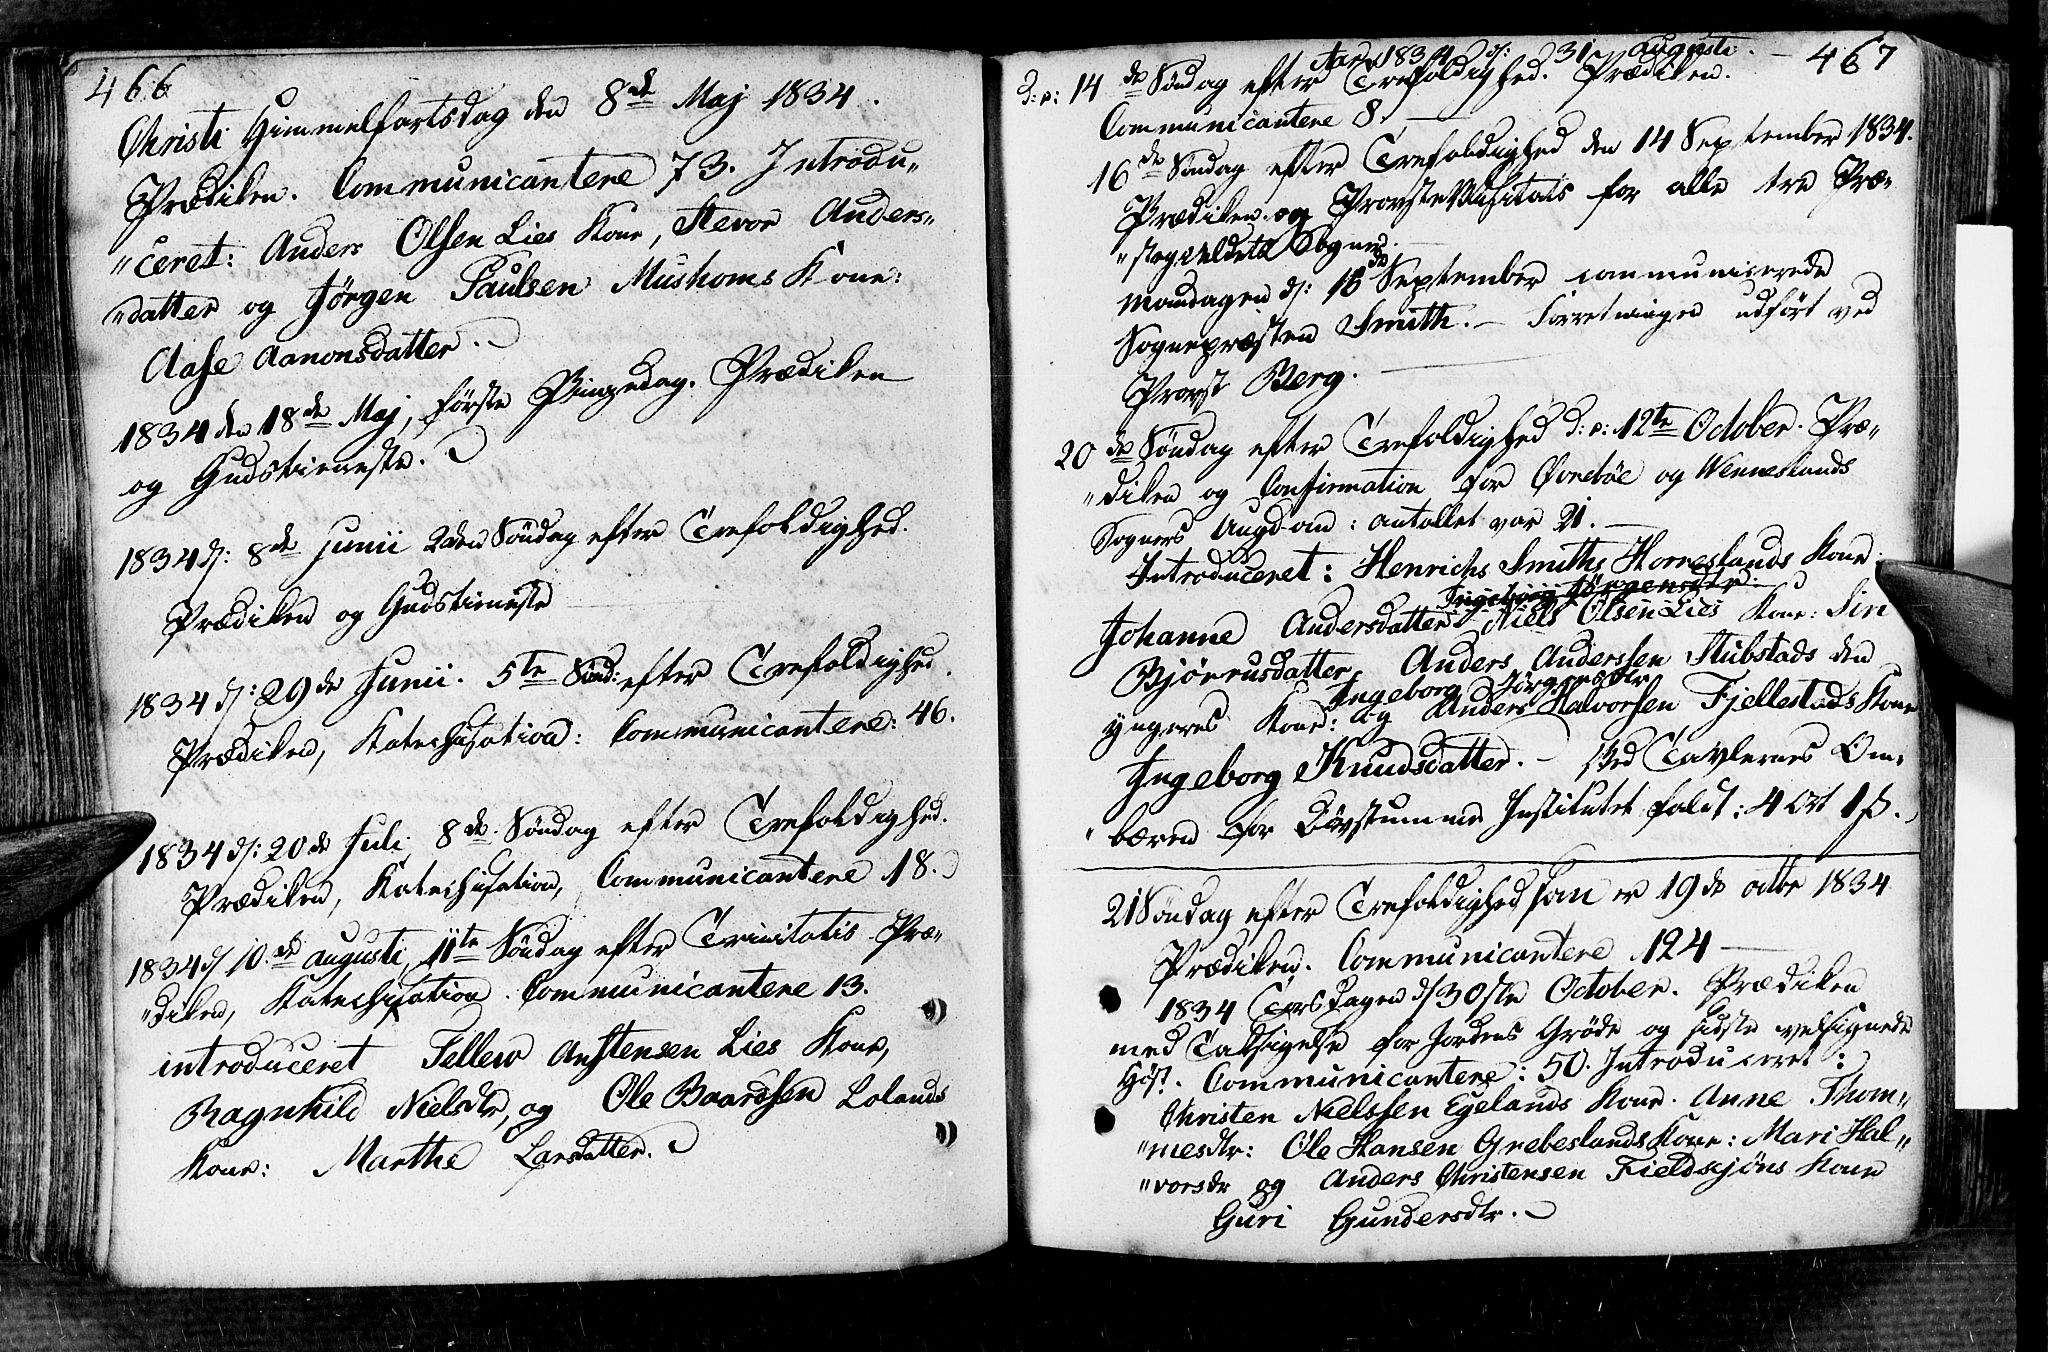 466
Christi Himmelfartsdag den 8de Maj 1834.
Prædiken. Communicantere 73. Introdu„
„ceret: Anders Olsen Lies Kone, Stevor Anders„
„datter og Jörgen Paulsen Mushoms Kone:
Aase Aanonsdatter.
1834 den 18de Maj, förste Pingsedag. Prædiken
og Gudstieneste.
1834 d: 8de Junii 2den Söndag efter Trefoldighed.
Prædiken og Gudstieneste
1834 d: 29de Junii. 5te Sönd: efter Trefoldighed.
Prædiken, Katechisation: Communicantere: 46.
1834 d: 20de Juli, 8de Söndag efter Trefoldighed.
Prædiken, Katechisation, Communicantere 18.
1834 d 10.de augusti, 11te Söndag efter Trinitatis Præ„
„diken, Katechisation. Communicantere 13.
introduceret Tellew Anstensen Lies Kone,
Ragnhild Nielsdtr, og Ole Baardsen Lolands
Kone: Marthe Larsdatter.
Aar 1834 d: 31 augusti. - 467
d: e: 14de Söndag efter Trefoldighed. Prædiken.
Communicantere 8.
16de Söndag efter Trefoldighed den 14 September 1834.
Prædiken og Provste Visitats for alle tre Præ„
„stegieldets Sogne.
Mandagen d: 15de September communicerede
Sognepræsten Smith. - Forretningen udfört ved
Provst Berg.
20de Söndag efter Trefoldighed d: e: 12te October. Præ„
„diken og Confirmation for Övreböe og Wenneslands
Sogners Ungdom: antallet var 21.
Introduceret: Henrichs Smiths Horreslands Kone:
Ingeborg Jörgensdtr.
Johanne Andersdatter Niels Olsen Lies Kone: Siri
Björnusdatter, Anders Anderssen Stubstads den
Ingeborg Jörgensdtr
yngeres Kone: og Anders Halvorsen Fjellestads Kone
Ingeborg Knudsdatter. - Ved Tavlernes Om„
„bæren for Dövstumme Institutet faldt: 4 Ort 1 ß.
21 Söndag efter Trefoldighed som er 19de octbr 1834
Prædiken. Communicantere 124
1834 Torsdagen d 30ste October. Prædiken
med Taksigelse for Jordens Gröde og sidste velsignede
Höst. Communicantere: 50. Introduceret:
Christen Nielssen Egelands Kone. Anne Thom„
„mesdtr: Ole Hansen Grebeslands Kone: Mari Hal„
„vorsdr og Anders Christensen Fieldsjöns Kone
Guri Gundersdtr.